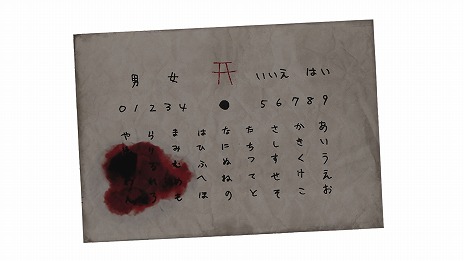 男 女 いいえ はい
0 1 2 3 4 ● 5 6 7 8 9
あいうえお
かきくけこ
さしすせそ
たちつてと
なにぬねの
はひふへほ
まみむめも
ら
や